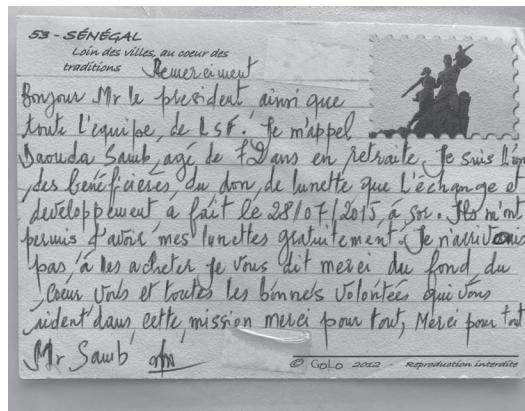 53 - SÉNÉGAL
Loin des villes, au coeur des
traditions
Remerciment
Bonjour Mr le president ainsi que
toute l'equipe, de LSF. Je m'appel
Daouda Samb, agé de 72 ans en retraite, Je suis l'un
des bénéficieres du don, de lunette que l'échange et
developpement á fait le 28/07/2015 á Sor. Ils m'ont
permis d'avoir mes lunettes gratuitement. Je n'arrivais
pas á les acheter je vous dit merci du fond du
coeur vous et toutes les bonnes volontées qui vous
aident dans cette mission merci pour tout, Merci pour tout
Mr Samb
© GOLO 2012 - Reproduction interdite